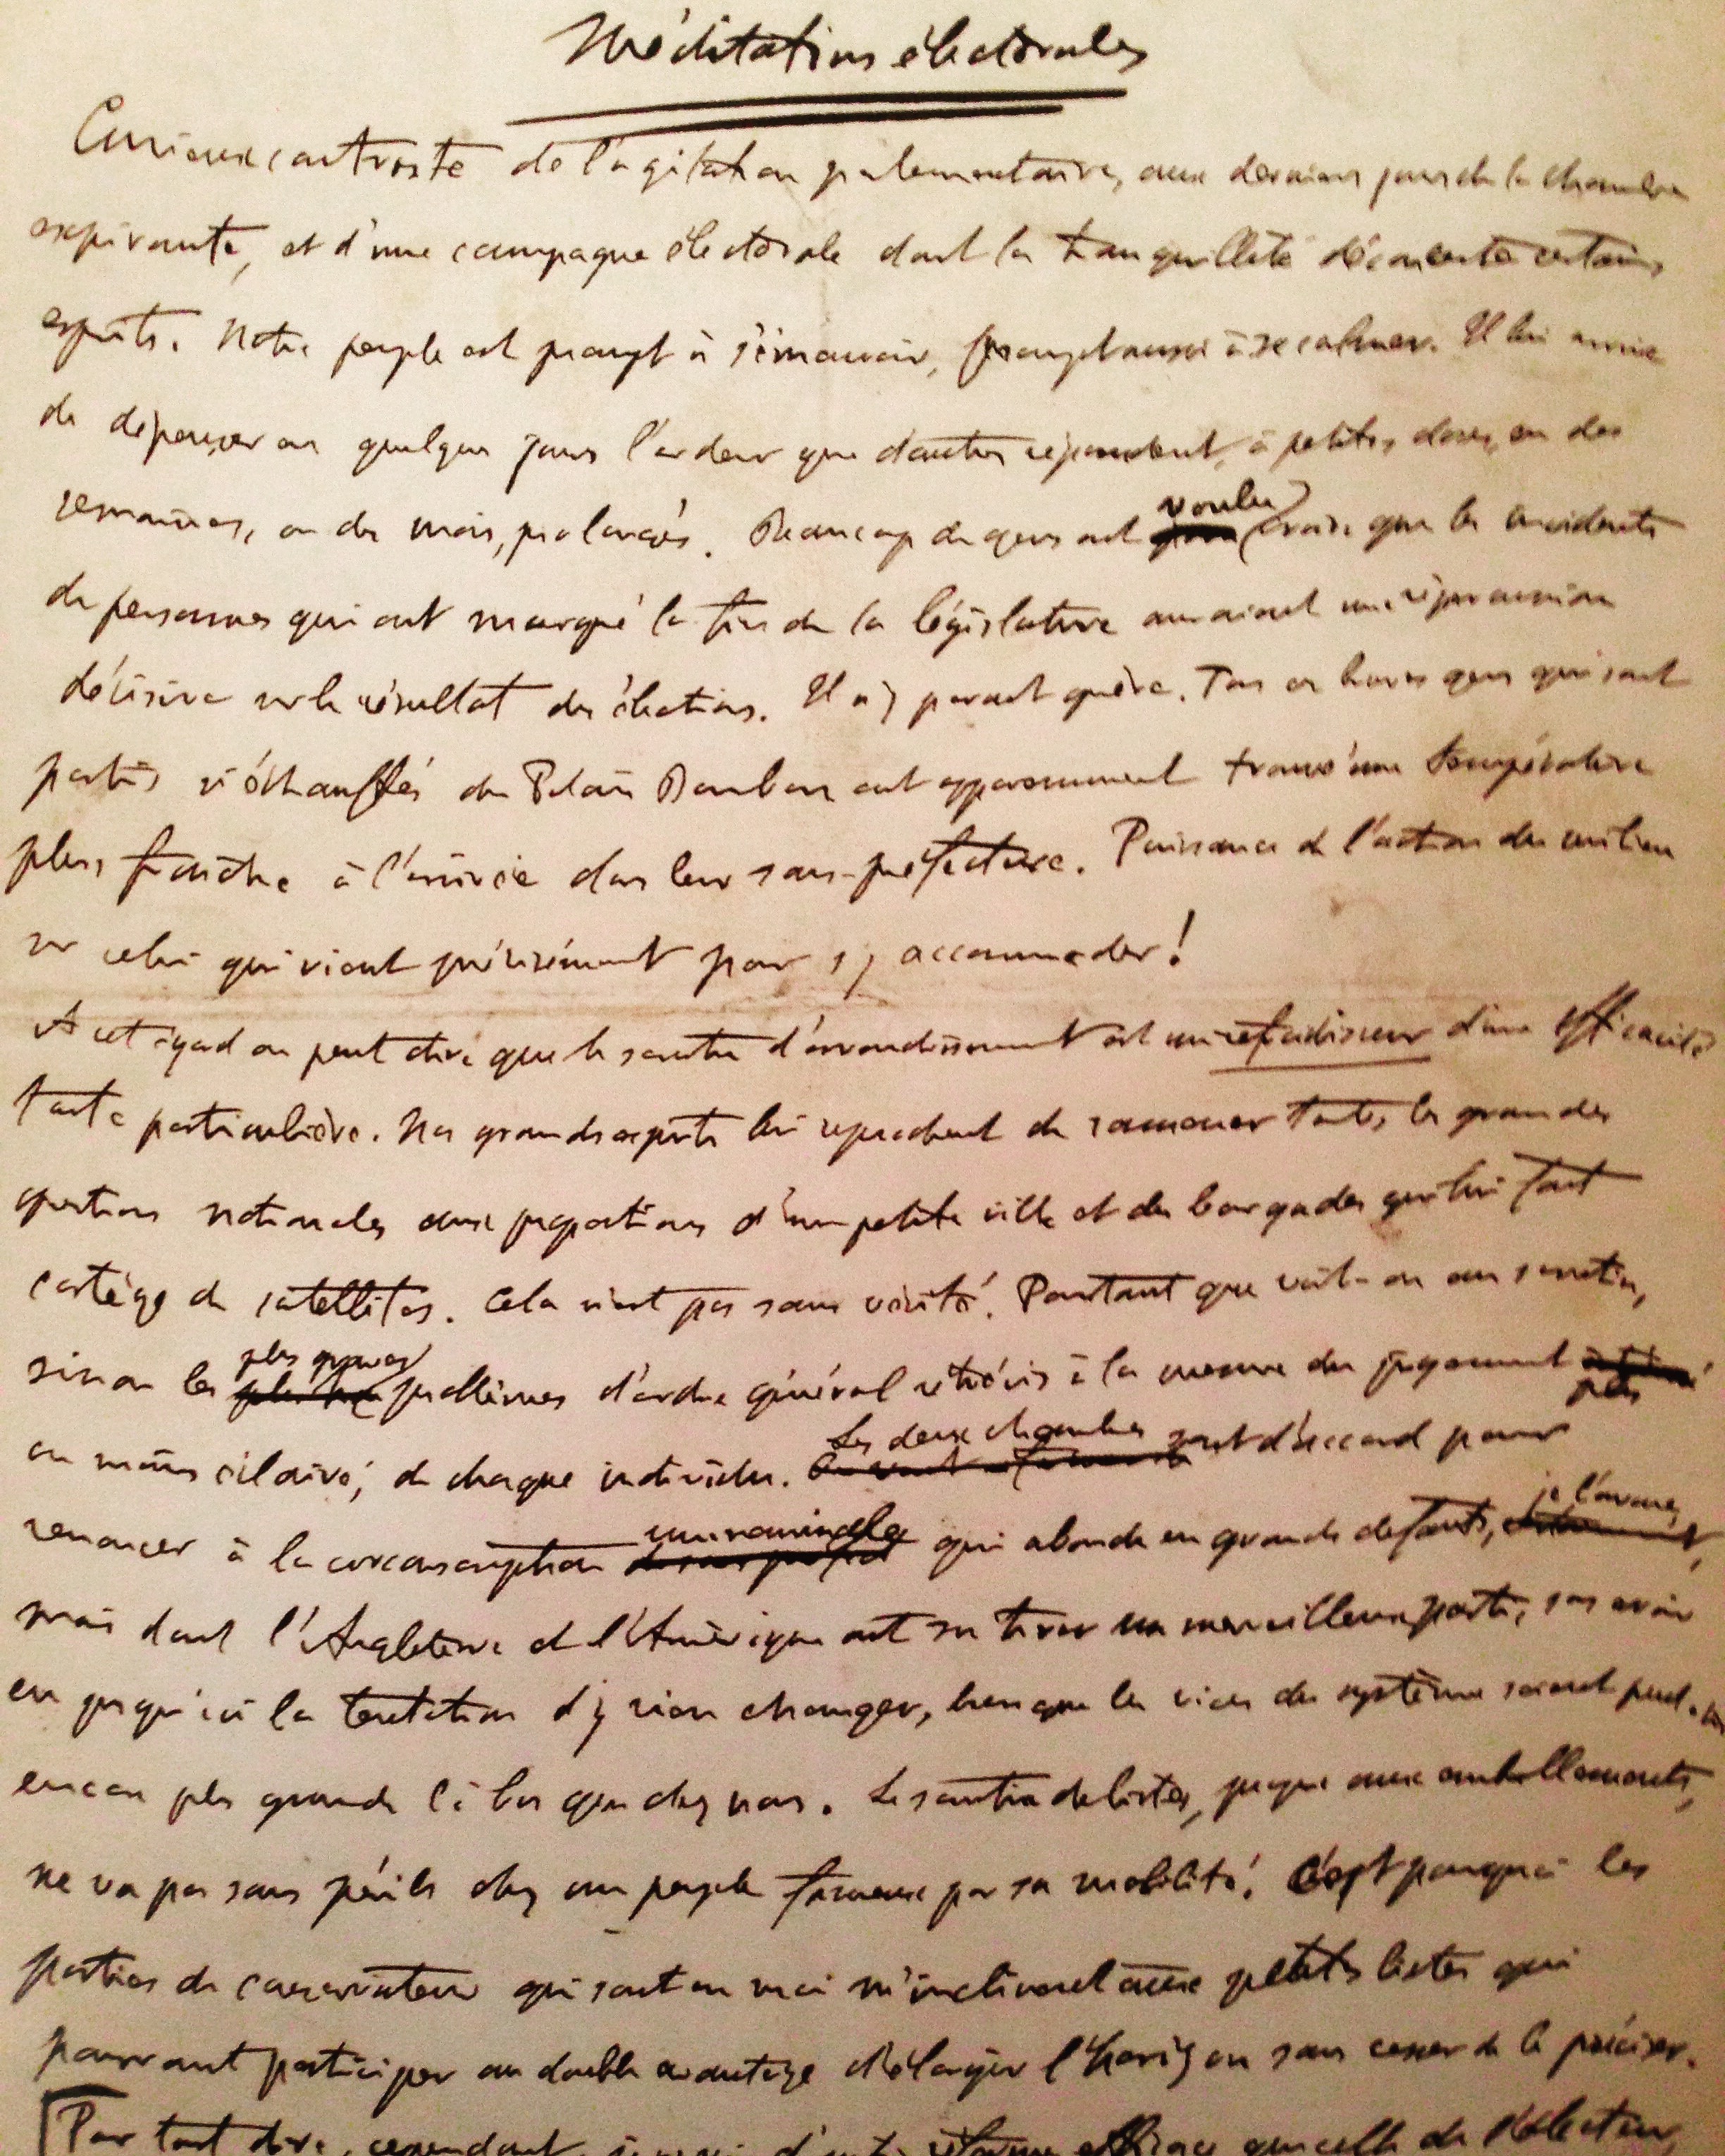 Méditations électorales
Curieux contraste de l'agitation parlementaire, aux derniers jours de la chambre
expirante, et d'une campagne électorale dont la tranquillité déconcerte certains
esprits. Notre peuple est prompt à s'émouvoir, prompt aussi à se calmer. Il lui arrive
de dépenser en quelques jours l'ardeur que d'autres répandent, à petites doses, en des
semaines, ou des mois, prolongés. Beaucoup de gens ont voulu croire que les incidents
de personnes qui ont marqué la fin de la législature auraient une répercussion
décisive sur le résultat des élections. Il n'y parait guère. Tous ces braves gens qui sont
partis si échauffés du Palais Bourbon ont apparemment trouvé une température
plus fraîche à l'arrivée dans leur sous-préfecture. Puissance de l'action du milieu
sur celui qui vient précisément pour s'y accommoder!
A cet égard on peut dire que le scrutin d'arrondissement est un refroidisseur d'une efficacité
toute particulière. Nos grands esprits lui reprochent de ramener toutes les grandes
questions nationales aux proportions d'une petite ville et des bourgades qui lui font
cortège de satellites. Cela n'est pas sans vérité. Pourtant que voit-on au scrutin,
sinon les plus graves problèmes d'ordre général rétrécis à la mesure du jugement plus
ou moins éclairé, de chaque individu. Les deux chambres sont d'accord pour
renoncer à la circonscription uninominale qui abonde en grands défauts, je l'avoue,
mais dont l'Angleterre et l'Amérique ont su tirer un merveilleux parti, sans avoir
eu jusqu'ici la tentation d'y rien changer, bien que les vices du système soient peut-être
encore plus grands là bas que chez nous. Le scrutin de liste, jusque aux embellements,
ne va pas sans périls chez un peuple fameux par sa mobilité. C'est pourquoi les
parties de conservateur qui sont en moi m'inclinent aux petites listes qui
pourront participer au double avantage d'élargir l'horizon sans cesser de le préciser.
Pour tout dire, cependant, d'autre réforme efficace que celle de l'électeur